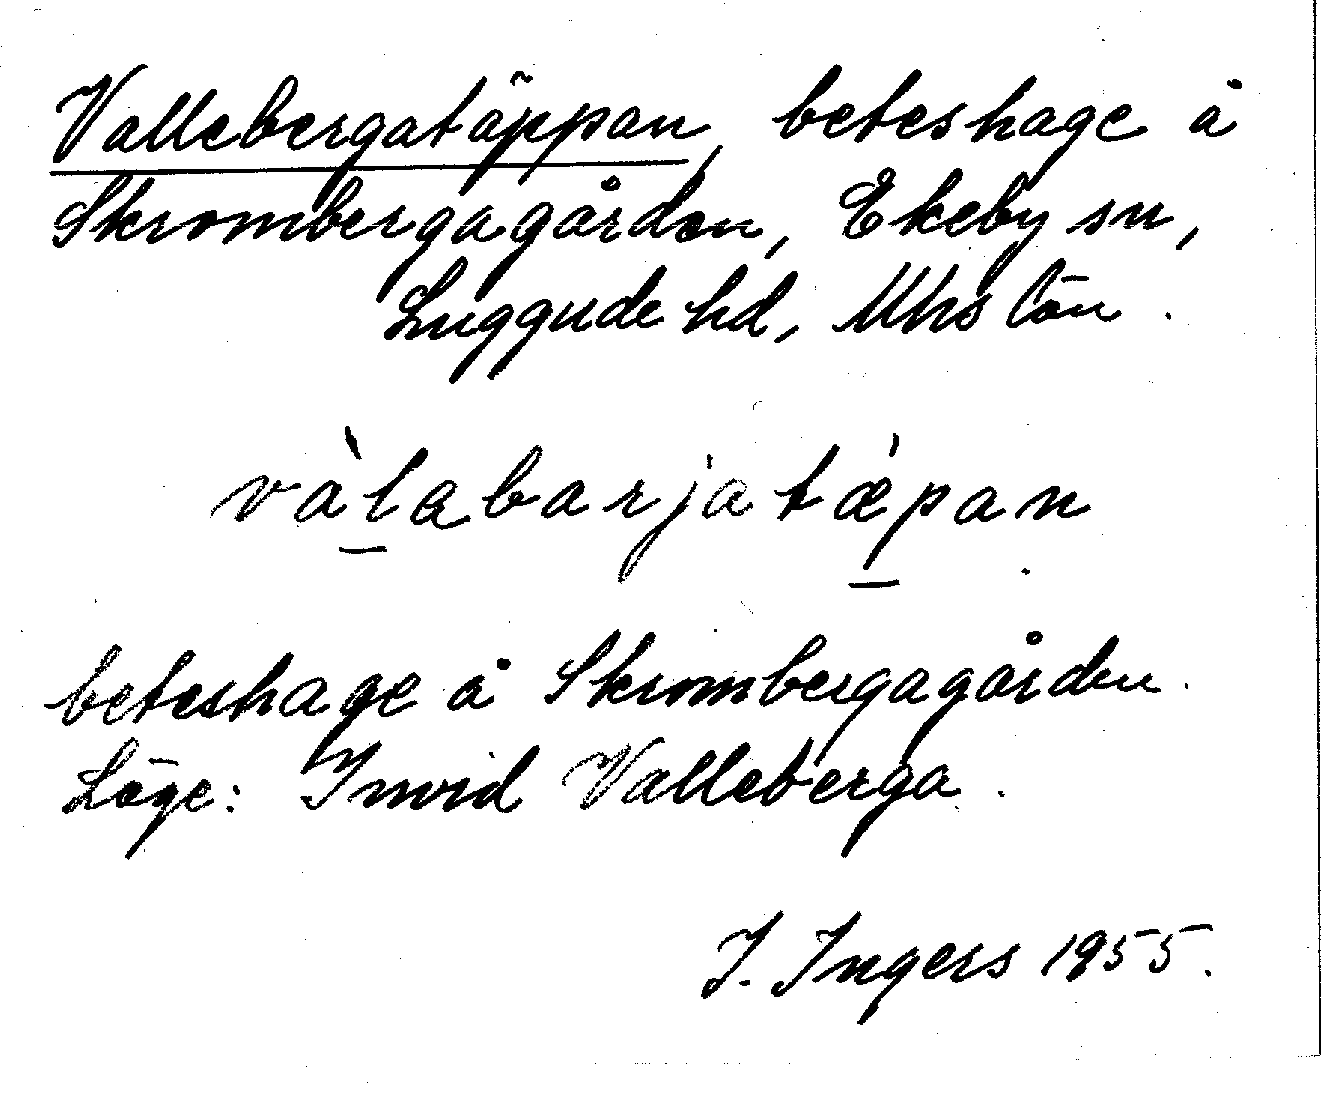 Vallebergatäppan, beteshage å
Skrombergagården, Ekeby sn,
Luggude hd, Mhs län.
vàlabarjatæ̀pan
beteshage å Skrombergagården.
Läge: Invid Valleberga.
I. Ingers 1955.